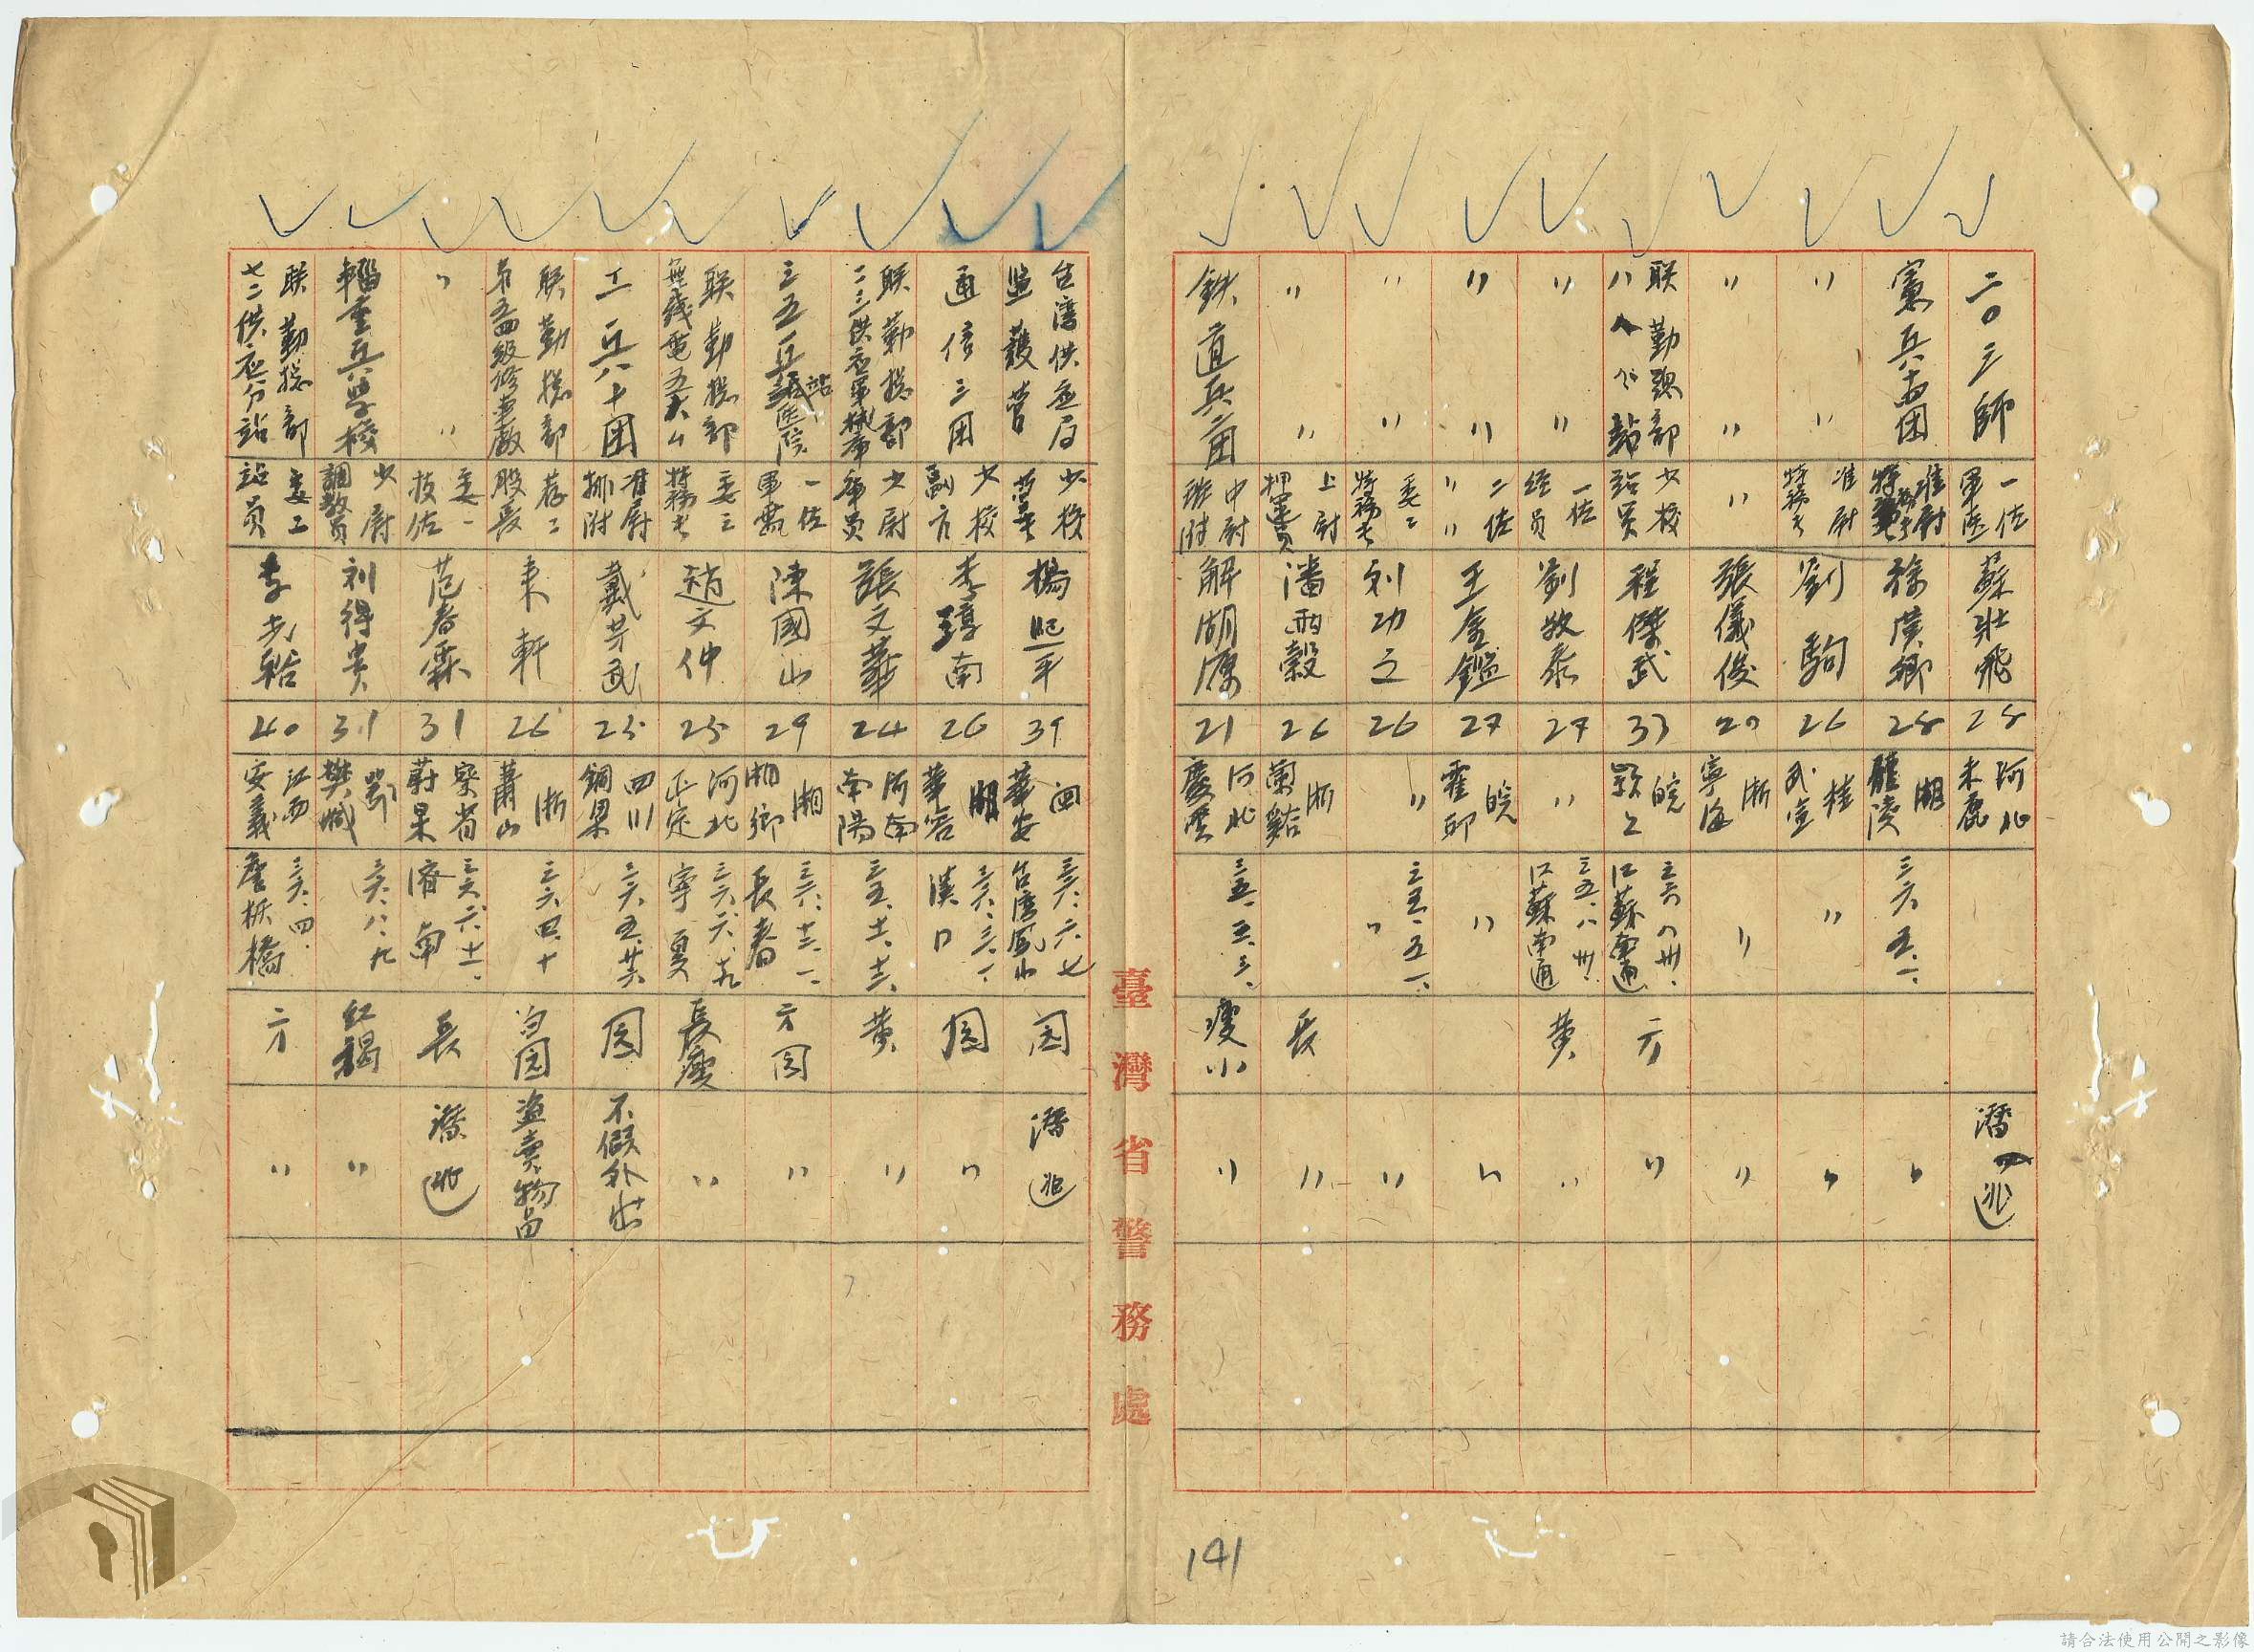 二〇三師 一佐 軍医 蘇壯飛 28 河北 束鹿 潛逃
憲兵十四团 准尉 徐廣卿 28 湖 醴陵 三六、五、一、 〃
〃 〃 准尉 特務長 劉駒 26 桂 武宣 〃 〃
〃 〃 〃 張儀俊 20 浙 寧海 〃 〃
联勤總部 少校 站員 程傑武 33 皖 潁上 三六、八、卅、 江蘇南通 方 〃
〃 〃 一佐 經員 劉牧泰 27 〃 三五、八、卅、 江蘇南通 黄 〃
〃 〃 二佐 〃 〃 王金鑑 27 皖 霍邱 〃 〃
〃 〃 委三 特務長 刘功立 26 〃 三五、五、一、 〃 〃
〃 〃 上尉 押運員 潘雨穀 26 浙 蘭谿 長 〃
鉄道兵二团 中尉 班附 解湖源 21 河北 慶雲 三五、五、三、 瘦小 〃
臺灣省警務處
台湾供应局 監護营 少校 营長 楊熙平 39 闽 華安 三六、六、七 台湾鳳山 园 潛逃
通信三团 少校 副官 李醇南 26 湖 華容 三六、三、一、 漢口 园 〃
联勤總部 二三供应軍械库 少尉 库員 張文華 24 河南 南陽 三五、十一、十三、 黄 〃
三五兵站医院 一佐 軍需 陳國山 29 湘 湘鄉 三六、十二、一、 長春 方园 〃
联勤總部 無綫電五大 委三 特務長 趙文仲 25 河北 正定 三六、六、十九 寧夏 長瘦 〃
工兵十团 准尉 排附 戴芳武 25 四川 銅梁 三六、五、廿六 园 不假外出
联勤總部 四級修車廠 荐二 股長 来軒 26 浙 蕭山 三六、四、十 白园 盗卖物品
〃 〃 委一 技佐 范春霖 31 察省 蔚县 三六、六、十一、 濟南 長 潛逃
輜重兵学校 少尉 調教員 刘得贵 31 鄂 樊城 三六、八、九 红褐 〃
联勤總部 七二供应分站 委二 站員 李步韜 40 江西 安義 三六、四、 詹板橋 方 〃
141
請合法使用公開之影像